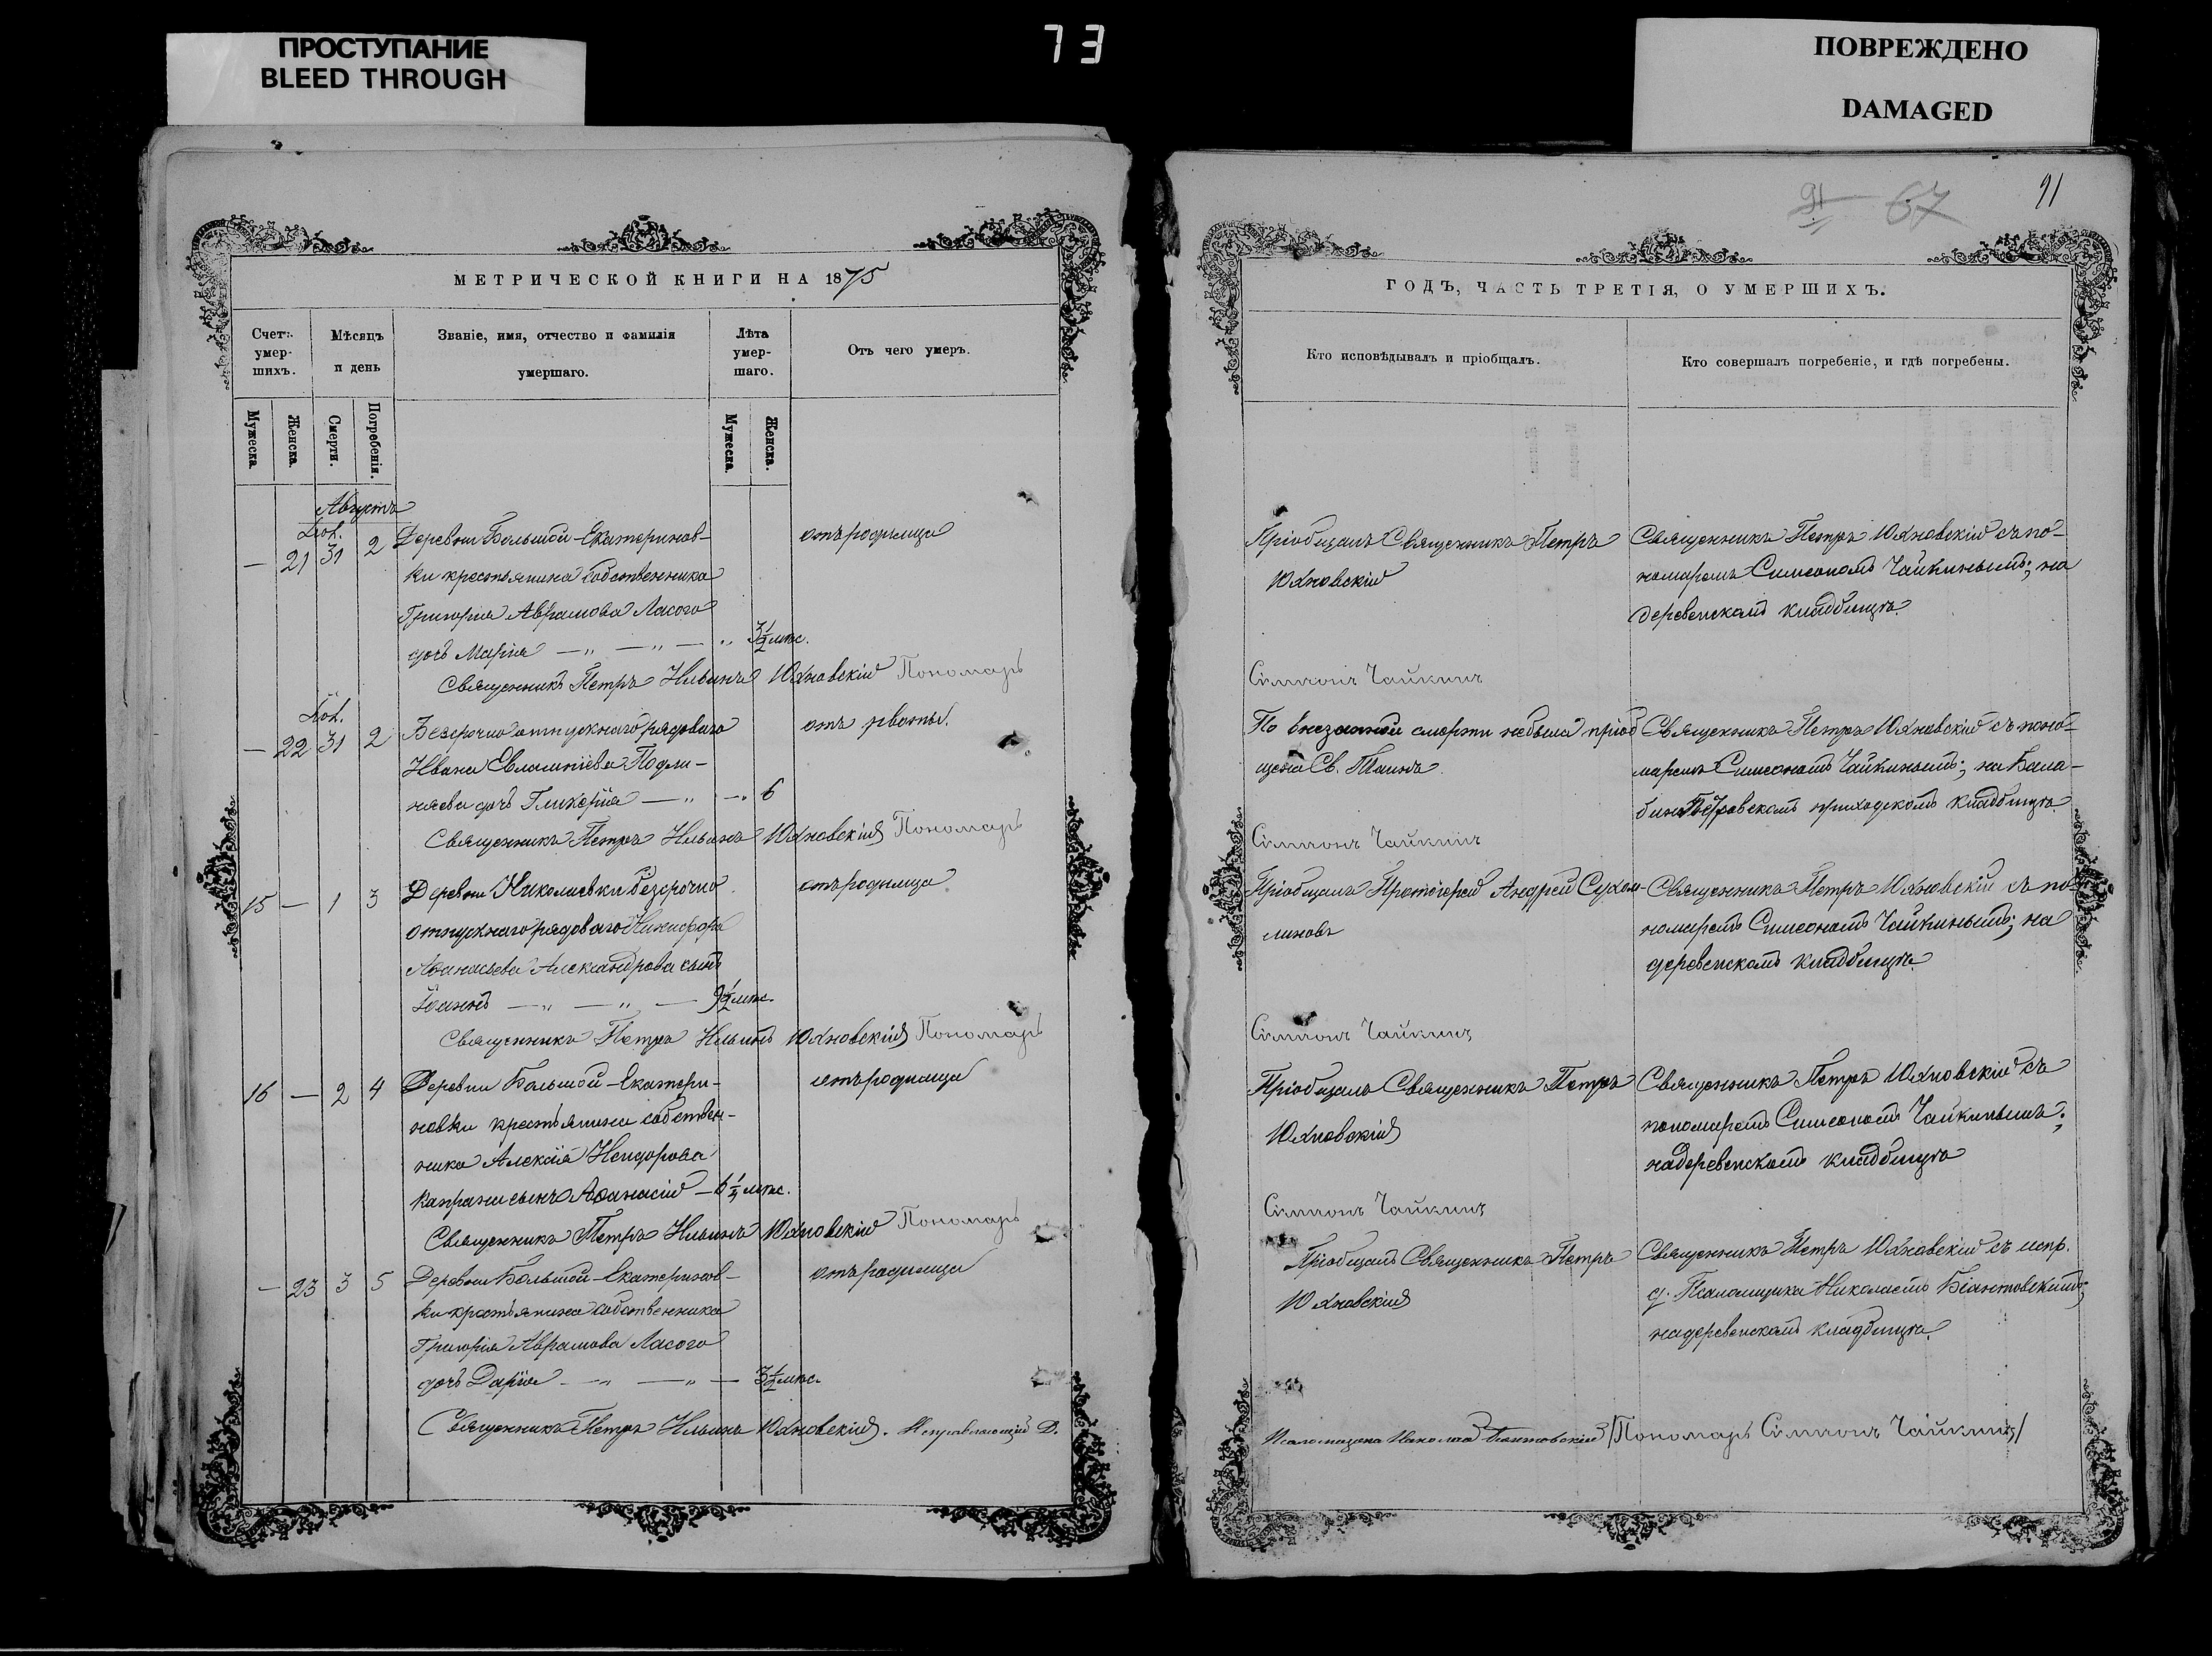 ПРОСТУПАНИЕ
BLEED THROUGH
73
ПОВРЕЖДЕНО
DAMAGED
МЕТРИЧЕСКОЙ КНИГИ НА 1875
Счетъ умер-шихъ.
Мѣсяцъ и день
Званіе, имя, отчество и фамилія умершаго.
Лѣта умер-шаго.
Отъ чего умеръ.
Мужеска.
Женска.
Смерти.
Погребенія.
Мужеска.
Женска.
Августъ
— 21 31 2 Деревни Большой-Екатеринов- отъ родимца
ки крестьянина собственника
Григорія Аврамова Ласого
дочь Марія — „ — „ — „ 3½ мѣс.
Священникъ Петръ Ильинъ Юхновскій Пономарь
— 22 31 2 Безсрочно отпускнаго рядоваго отъ рвоты.
Ивана Евлампіева Подли-
няева дочь Гликерія — „ — „ 6
Священникъ Петръ Ильинъ Юхновскій Пономарь
15 — 1 3 Деревни Николаевки безсрочно отъ родимца
отпускнаго рядоваго Никифора
Аѳанасьева Александрова сынъ
Іоаннъ — „ — „ — 9½ мѣс.
Священникъ Петръ Ильинъ Юхновскій Пономарь
16 — 2 4 Деревни Большой-Екатери- отъ родимца
новки крестьянина собствен-
ника Алексія
сынъ Аѳанасій — 6¼ мѣс.
Священникъ Петръ Ильинъ Юхновскій Пономарь
— 23 3 5 Деревни Большой-Екатеринов- отъ родимца
ки крестьянина собственника
Григорія Аврамова Ласого
дочь Дарія — „ — „ — 3½ мѣс.
Священникъ Петръ Ильинъ Юхновскій. Исправляющій Д.
91 67
91
ГОДЪ, ЧАСТЬ ТРЕТІЯ, О УМЕРШИХЪ.
Кто исповѣдывалъ и пріобщалъ.
Кто совершалъ погребеніе, и гдѣ погребены.
Пріобщалъ Священникъ Петръ Священникъ Петръ Юхновскій съ по-
Юхновскій номаремъ Симеономъ Чайкинымъ; на
деревенскомъ кладбищѣ.
Сімеонъ Чайкинъ
По внезапной смерти небыла пріоб Священникъ Петръ Юхновскій съ поно-
щена Св. Таинъ. маремъ Симеономъ Чайкинымъ; на Бала-
бино Петровскомъ приходскомъ кладбищѣ.
Сімеонъ Чайкинъ
Пріобщалъ Протоіерей Андрей Сухом- Священникъ Петръ Юхновскій съ по-
линовъ номаремъ Симеономъ Чайкинымъ; на
деревенскомъ кладбищѣ.
Сімеонъ Чайкинъ
Пріобщалъ Священникъ Петръ Священникъ Петръ Юхновскій съ
Юхновскій пономаремъ Симеономъ Чайкинымъ;
на деревенскомъ кладбищѣ
Сімеонъ Чайкинъ
Пріобщалъ Священникъ Петръ Священникъ Петръ Юхновскій съ испр.
Юхновскій д. Псаломщика Николаемъ
на деревенскомъ кладбищѣ.
Псаломщика Николай /Пономарь Сімеонъ Чайкинъ/